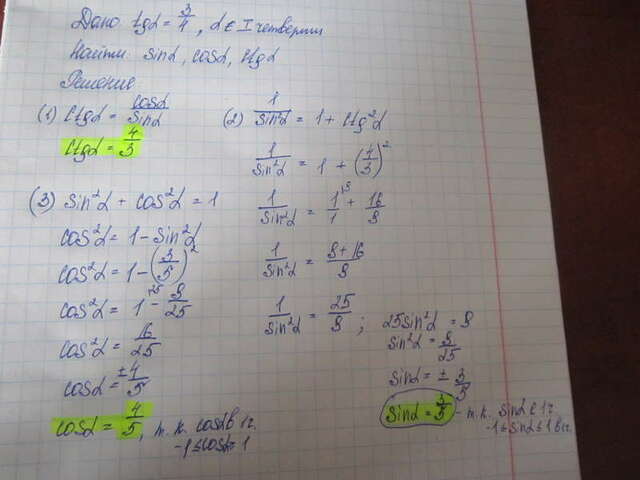 Дано tgα = 3/4, α ∈ I четверти
Найти sinα, cosα, ctgα
Решение
(1) ctgα = cosα/sinα
ctgα = 4/3
(2) 1/sin²α = 1 + ctg²α
1/sin²α = 1 + (4/3)²
1/sin²α = 1/1 + 16/9
1/sin²α = 9+16/9
1/sin²α = 25/9 ;
25sin²α = 9
sin²α = 9/25
sinα = ± 3/5
sinα = 3/5 - т.к. sinα в 1 ч.
-1 ≤ sinα ≤ 1
(3) sin²α + cos²α = 1
cos²α = 1 - sin²α
cos²α = 1 - (3/5)²
cos²α = 1 - 9/25
cos²α = 16/25
cosα = ±4/5
cosα = 4/5, т.к. cosα в 1 ч.